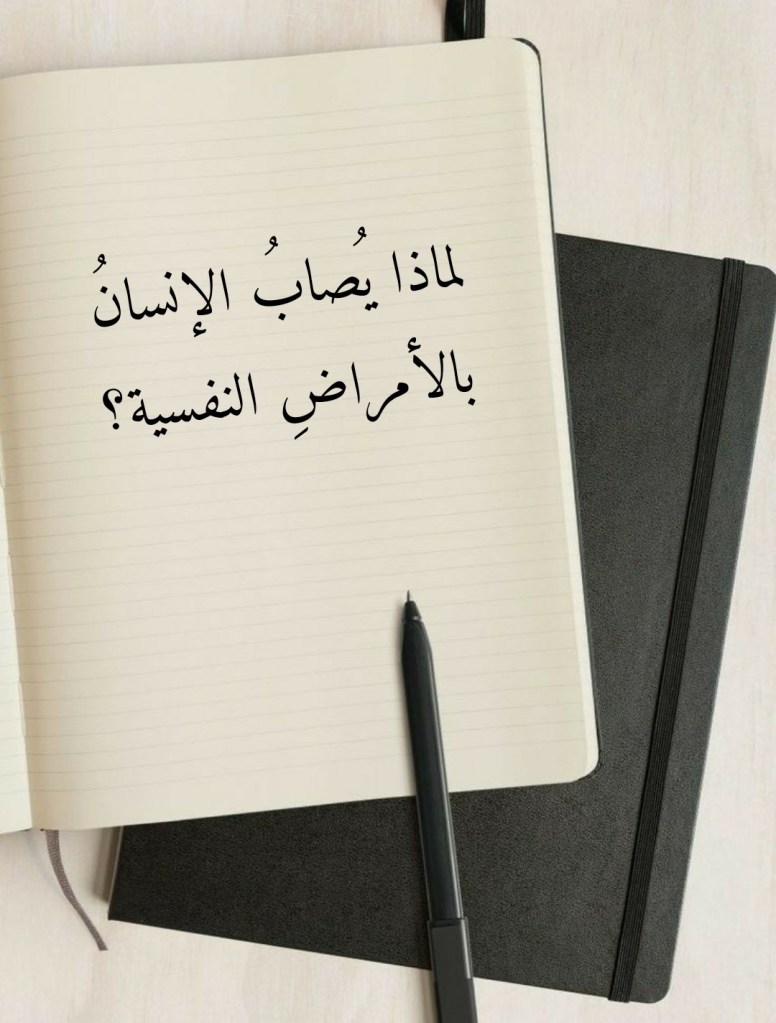 لماذا يُصابُ الإنسانُ
بالأمراضِ النفسية؟